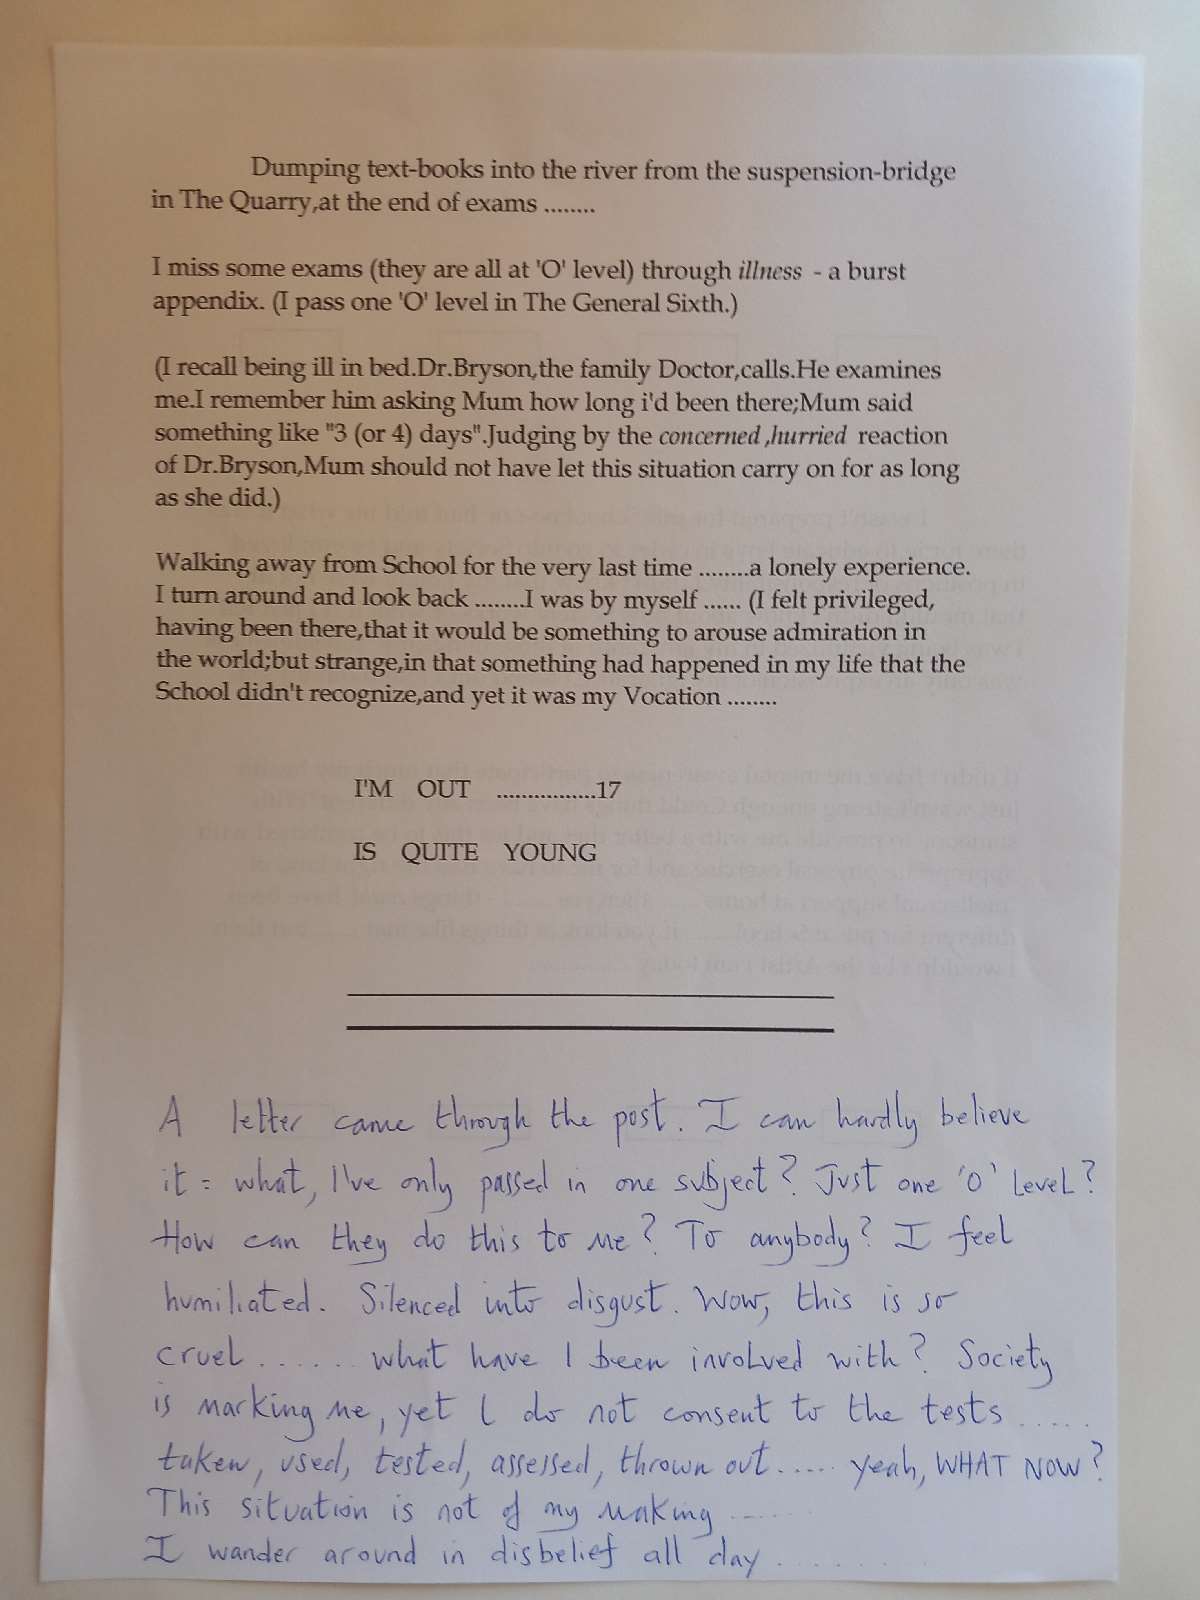 Dumping text-books into the river from the suspension-bridge
in The Quarry,at the end of exams ........
I miss some exams (they are all at 'O' level) through illness - a burst
appendix. (I pass one 'O' level in The General Sixth.)
(I recall being ill in bed.Dr.Bryson,the family Doctor,calls.He examines
me.I remember him asking Mum how long i'd been there;Mum said
something like "3 (or 4) days".Judging by the concerned ,hurried reaction
of Dr.Bryson,Mum should not have let this situation carry on for as long
as she did.)
Walking away from School for the very last time ........a lonely experience.
I turn around and look back ........I was by myself ...... (I felt privileged,
having been there,that it would be something to arouse admiration in
the world;but strange,in that something had happened in my life that the
School didn't recognize,and yet it was my Vocation ........
I'M OUT ................17
IS QUITE YOUNG
A letter came through the post. I can hardly believe
it = what, I've only passed in one subject? Just one 'O' LeveL?
How can they do this to me? To anybody? I feel
humiliated. Silenced into disgust. Wow, this is so
cruel....... what have I been involved with? Society
is marking me, yet I do not consent to the tests .....
taken, used, tested, assessed, thrown out..... yeah, WHAT NOW?
This situation is not of my making .......
I wander around in disbelief all day .........